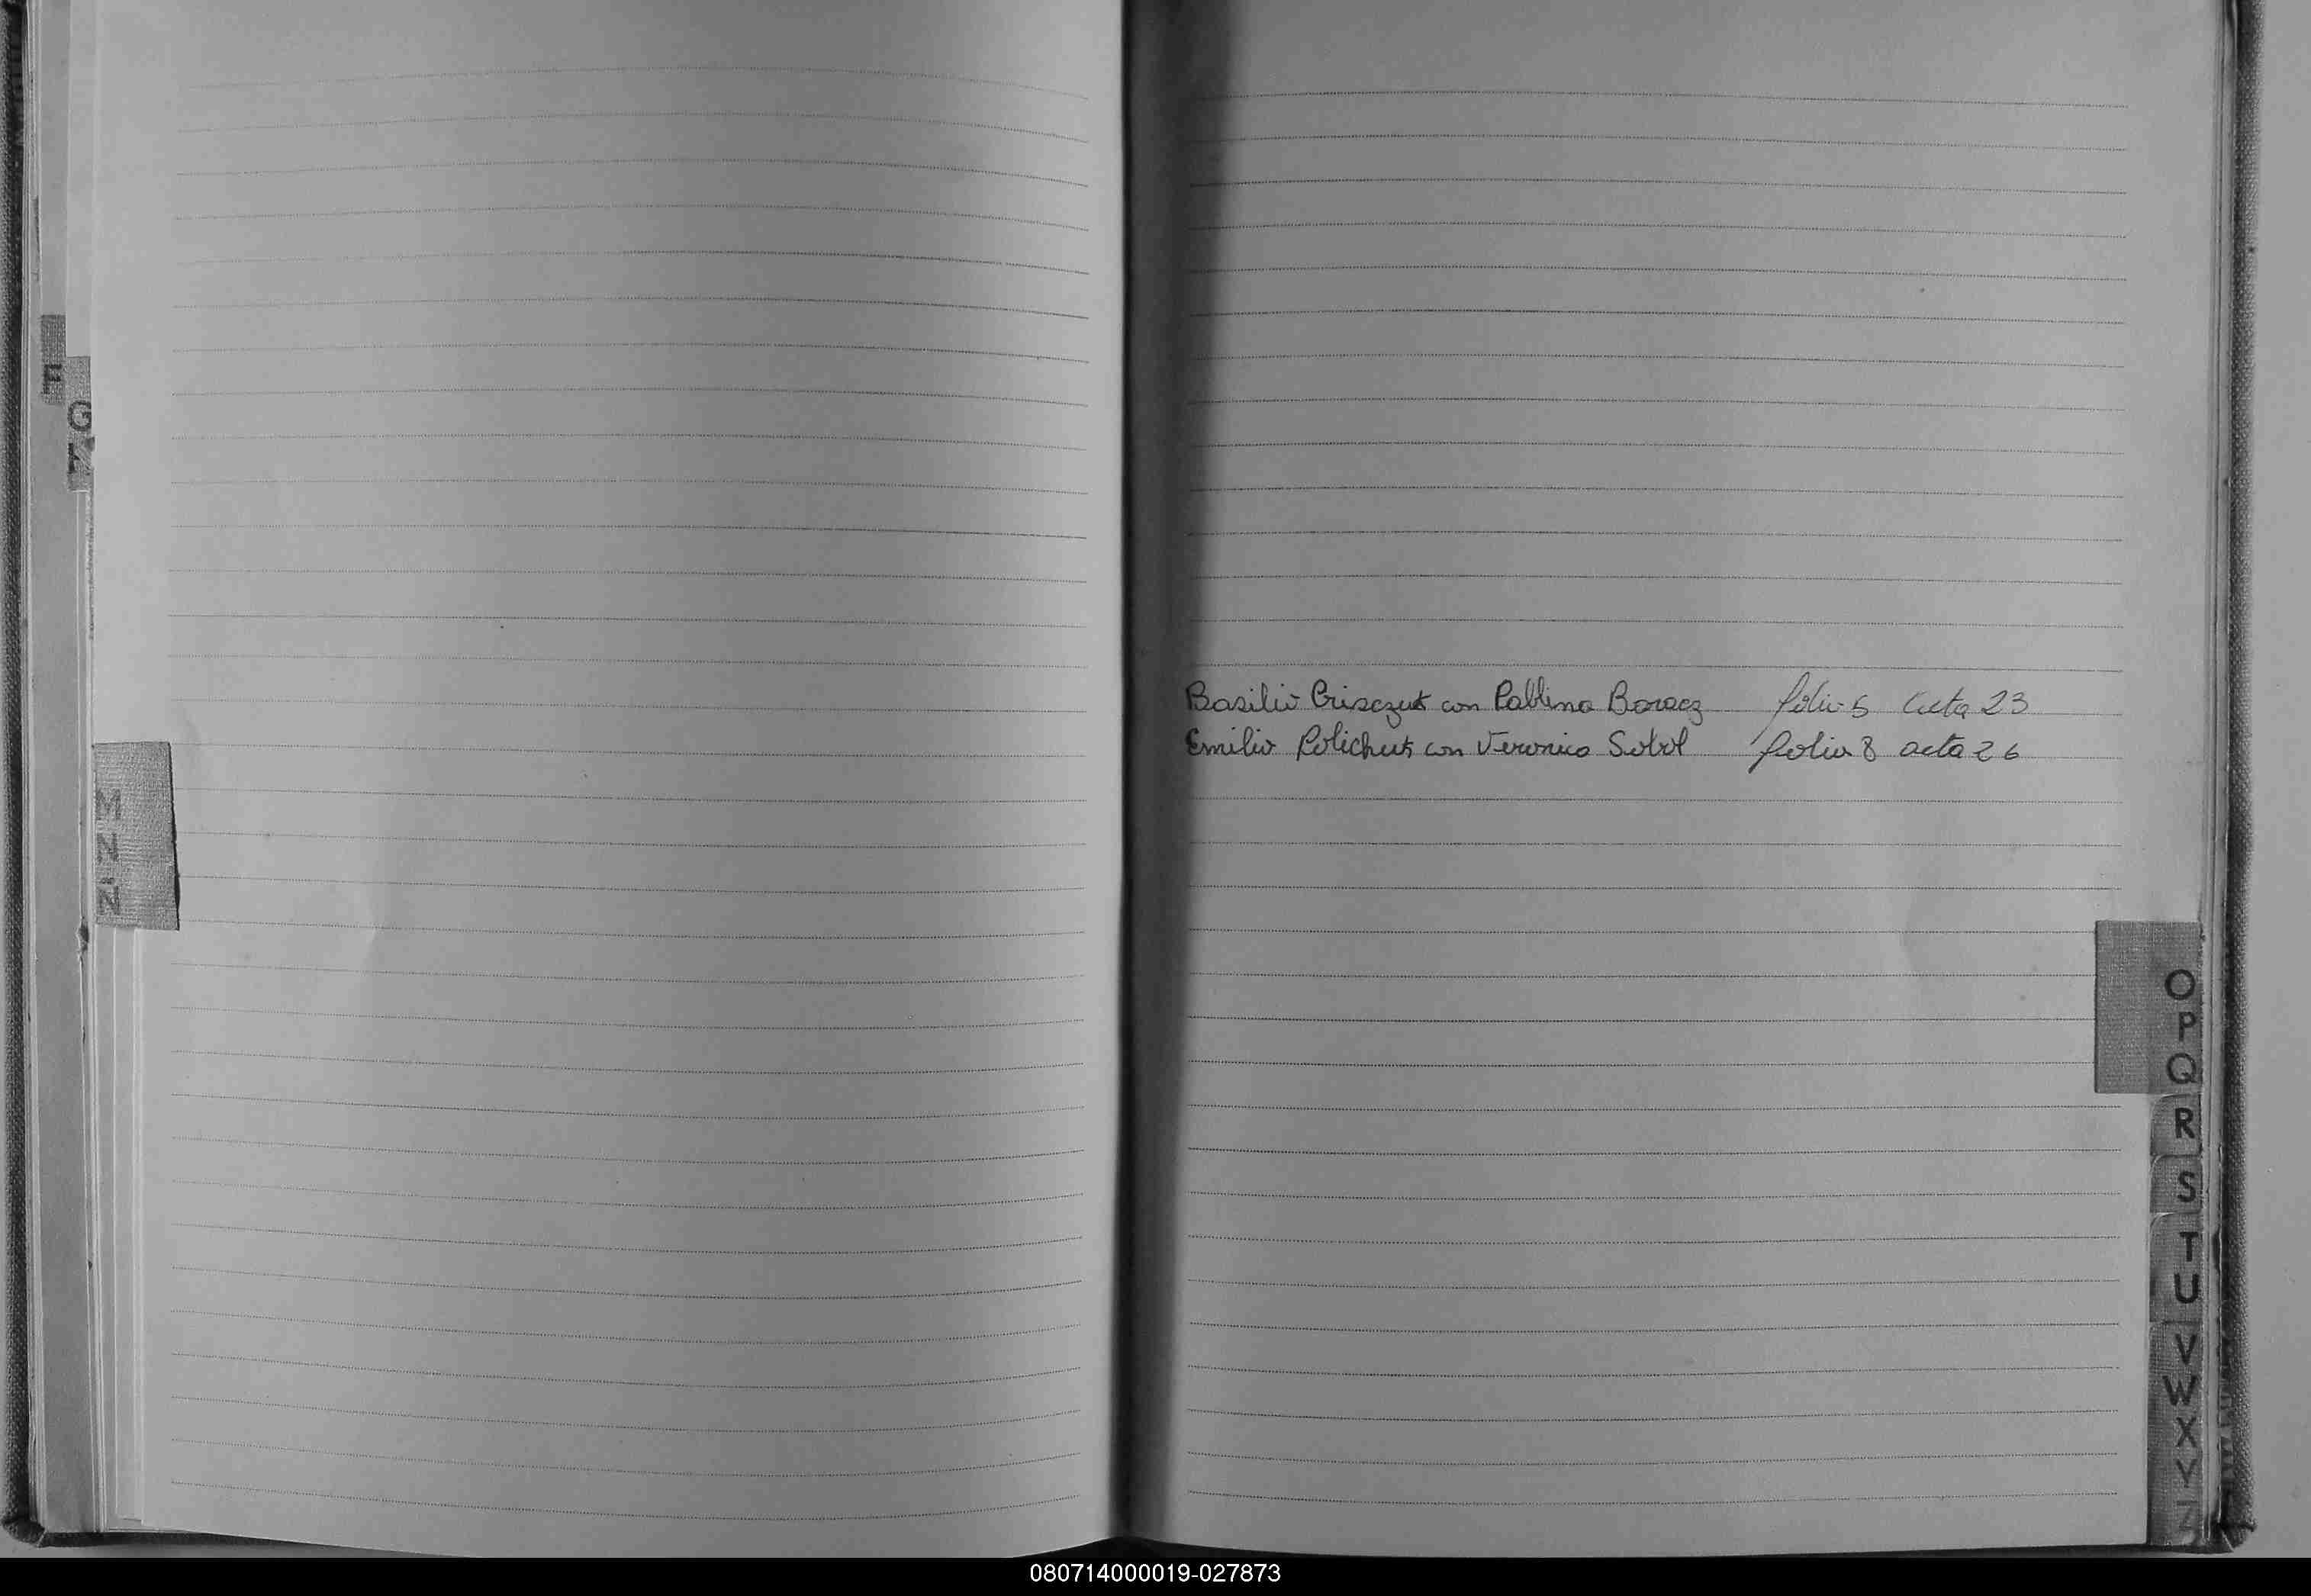 F
G
M
N
Ñ
Basilio Crisczuk con Pablina Baracz folio 5 acta 23
Emilio Polichuk con Veronica Sobol folio 8 acta 26
O
P
Q
R
S
T
U
V
W
X
Y
Z
080714000019-027873